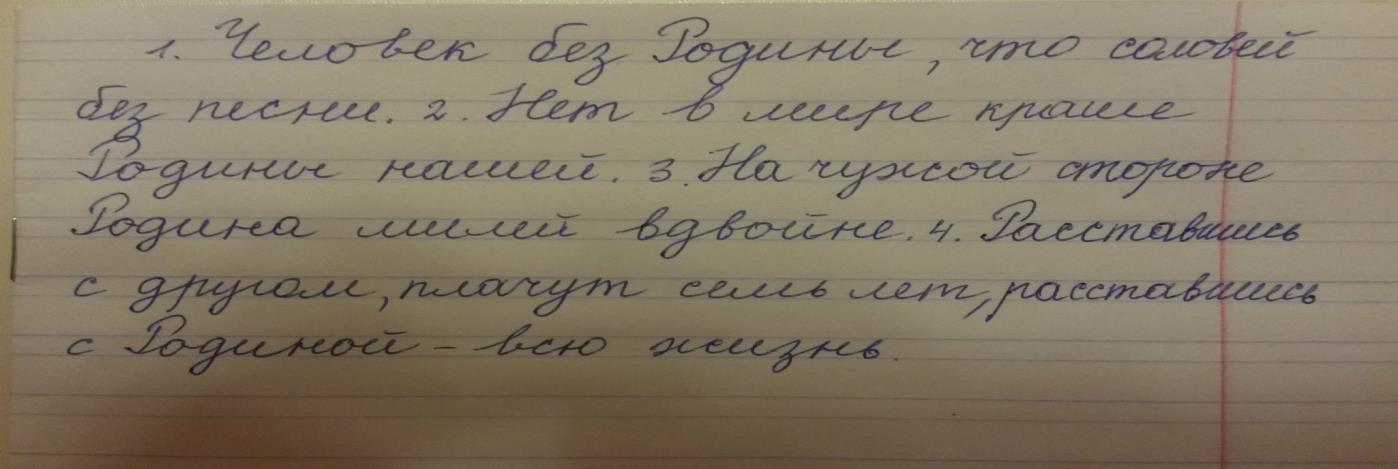 1. Человек без Родины, что соловей
без песни. 2. Нет в мире краше
Родины нашей. 3. На чужой стороне
Родина милей вдвойне. 4. Расставшись
с другом, плачут семь лет, расставшись
с Родиной – всю жизнь.